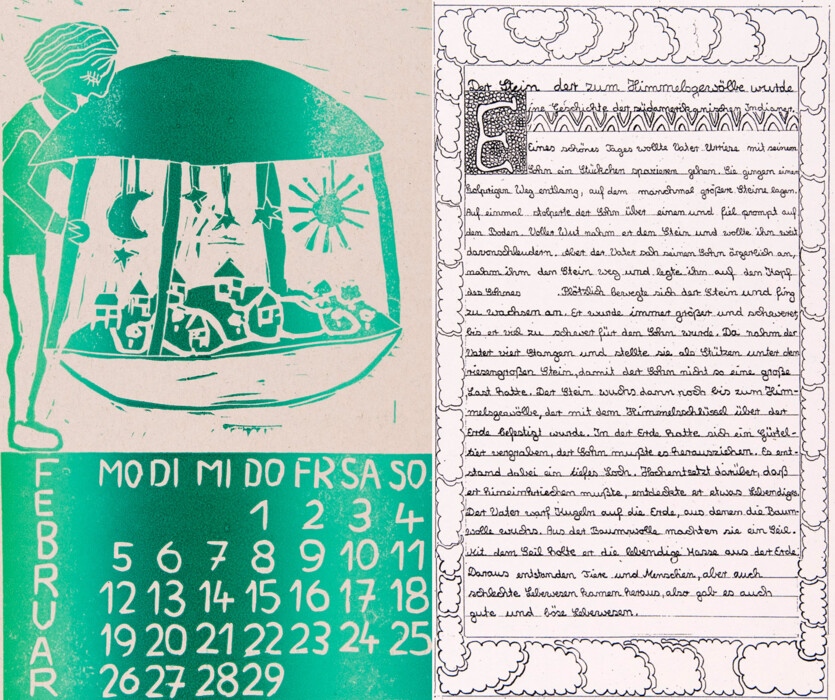 FEBRUAR
MO DI MI DO FR SA SO
1 2 3 4
5 6 7 8 9 10 11
12 13 14 15 16 17 18
19 20 21 22 23 24 25
26 27 28 29
Der Stein der zum Himmelsgewölbe wurde
Eine Geschichte der südamerikanischen Indianer.
Eines schönes Tages wollte Vater mit seinem
Sohn ein Stückchen spazieren gehen. Sie gingen einen
holprigen Weg entlang, auf dem manchmal größere Steine lagen.
Auf einmal stolperte der Sohn über einen und fiel prompt auf
den Boden. Voller Wut nahm er den Stein und wollte ihn weit
davonschleudern. Aber der Vater sah seinen Sohn ärgerlich an,
nahm ihm den Stein weg und legte ihn auf den Kopf
des Sohnes. Plötzlich bewegte sich der Stein und fing
zu wachsen an. Er wurde immer größer und schwerer,
bis er viel zu schwer für den Sohn wurde. Da nahm der
Vater vier Stangen und stellte sie als Stützen unter den
riesengroßen Stein, damit der Sohn nicht so eine große
Last hatte. Der Stein wuchs dann noch bis zum Him-
melsgewölbe, der mit dem Himmelschlüssel über der
Erde befestigt wurde. In der Erde hatte sich ein Gürtel-
tier vergraben, der Sohn mußte es herausziehen. Es ent-
stand dabei ein tiefes Loch. Hochentsetzt darüber, daß
er hineinkriechen mußte, entdeckte er etwas lebendiges.
Der Vater warf Kugeln auf die Erde, aus denen die Baum-
wolle wuchs. Aus der Baumwolle machten sie ein Seil.
Mit dem Seil holte er die lebendige Masse aus der Erde.
Daraus entstanden Tiere und Menschen, aber auch
schlechte Lebewesen kamen heraus, also gab es auch
gute und böse Lebewesen.